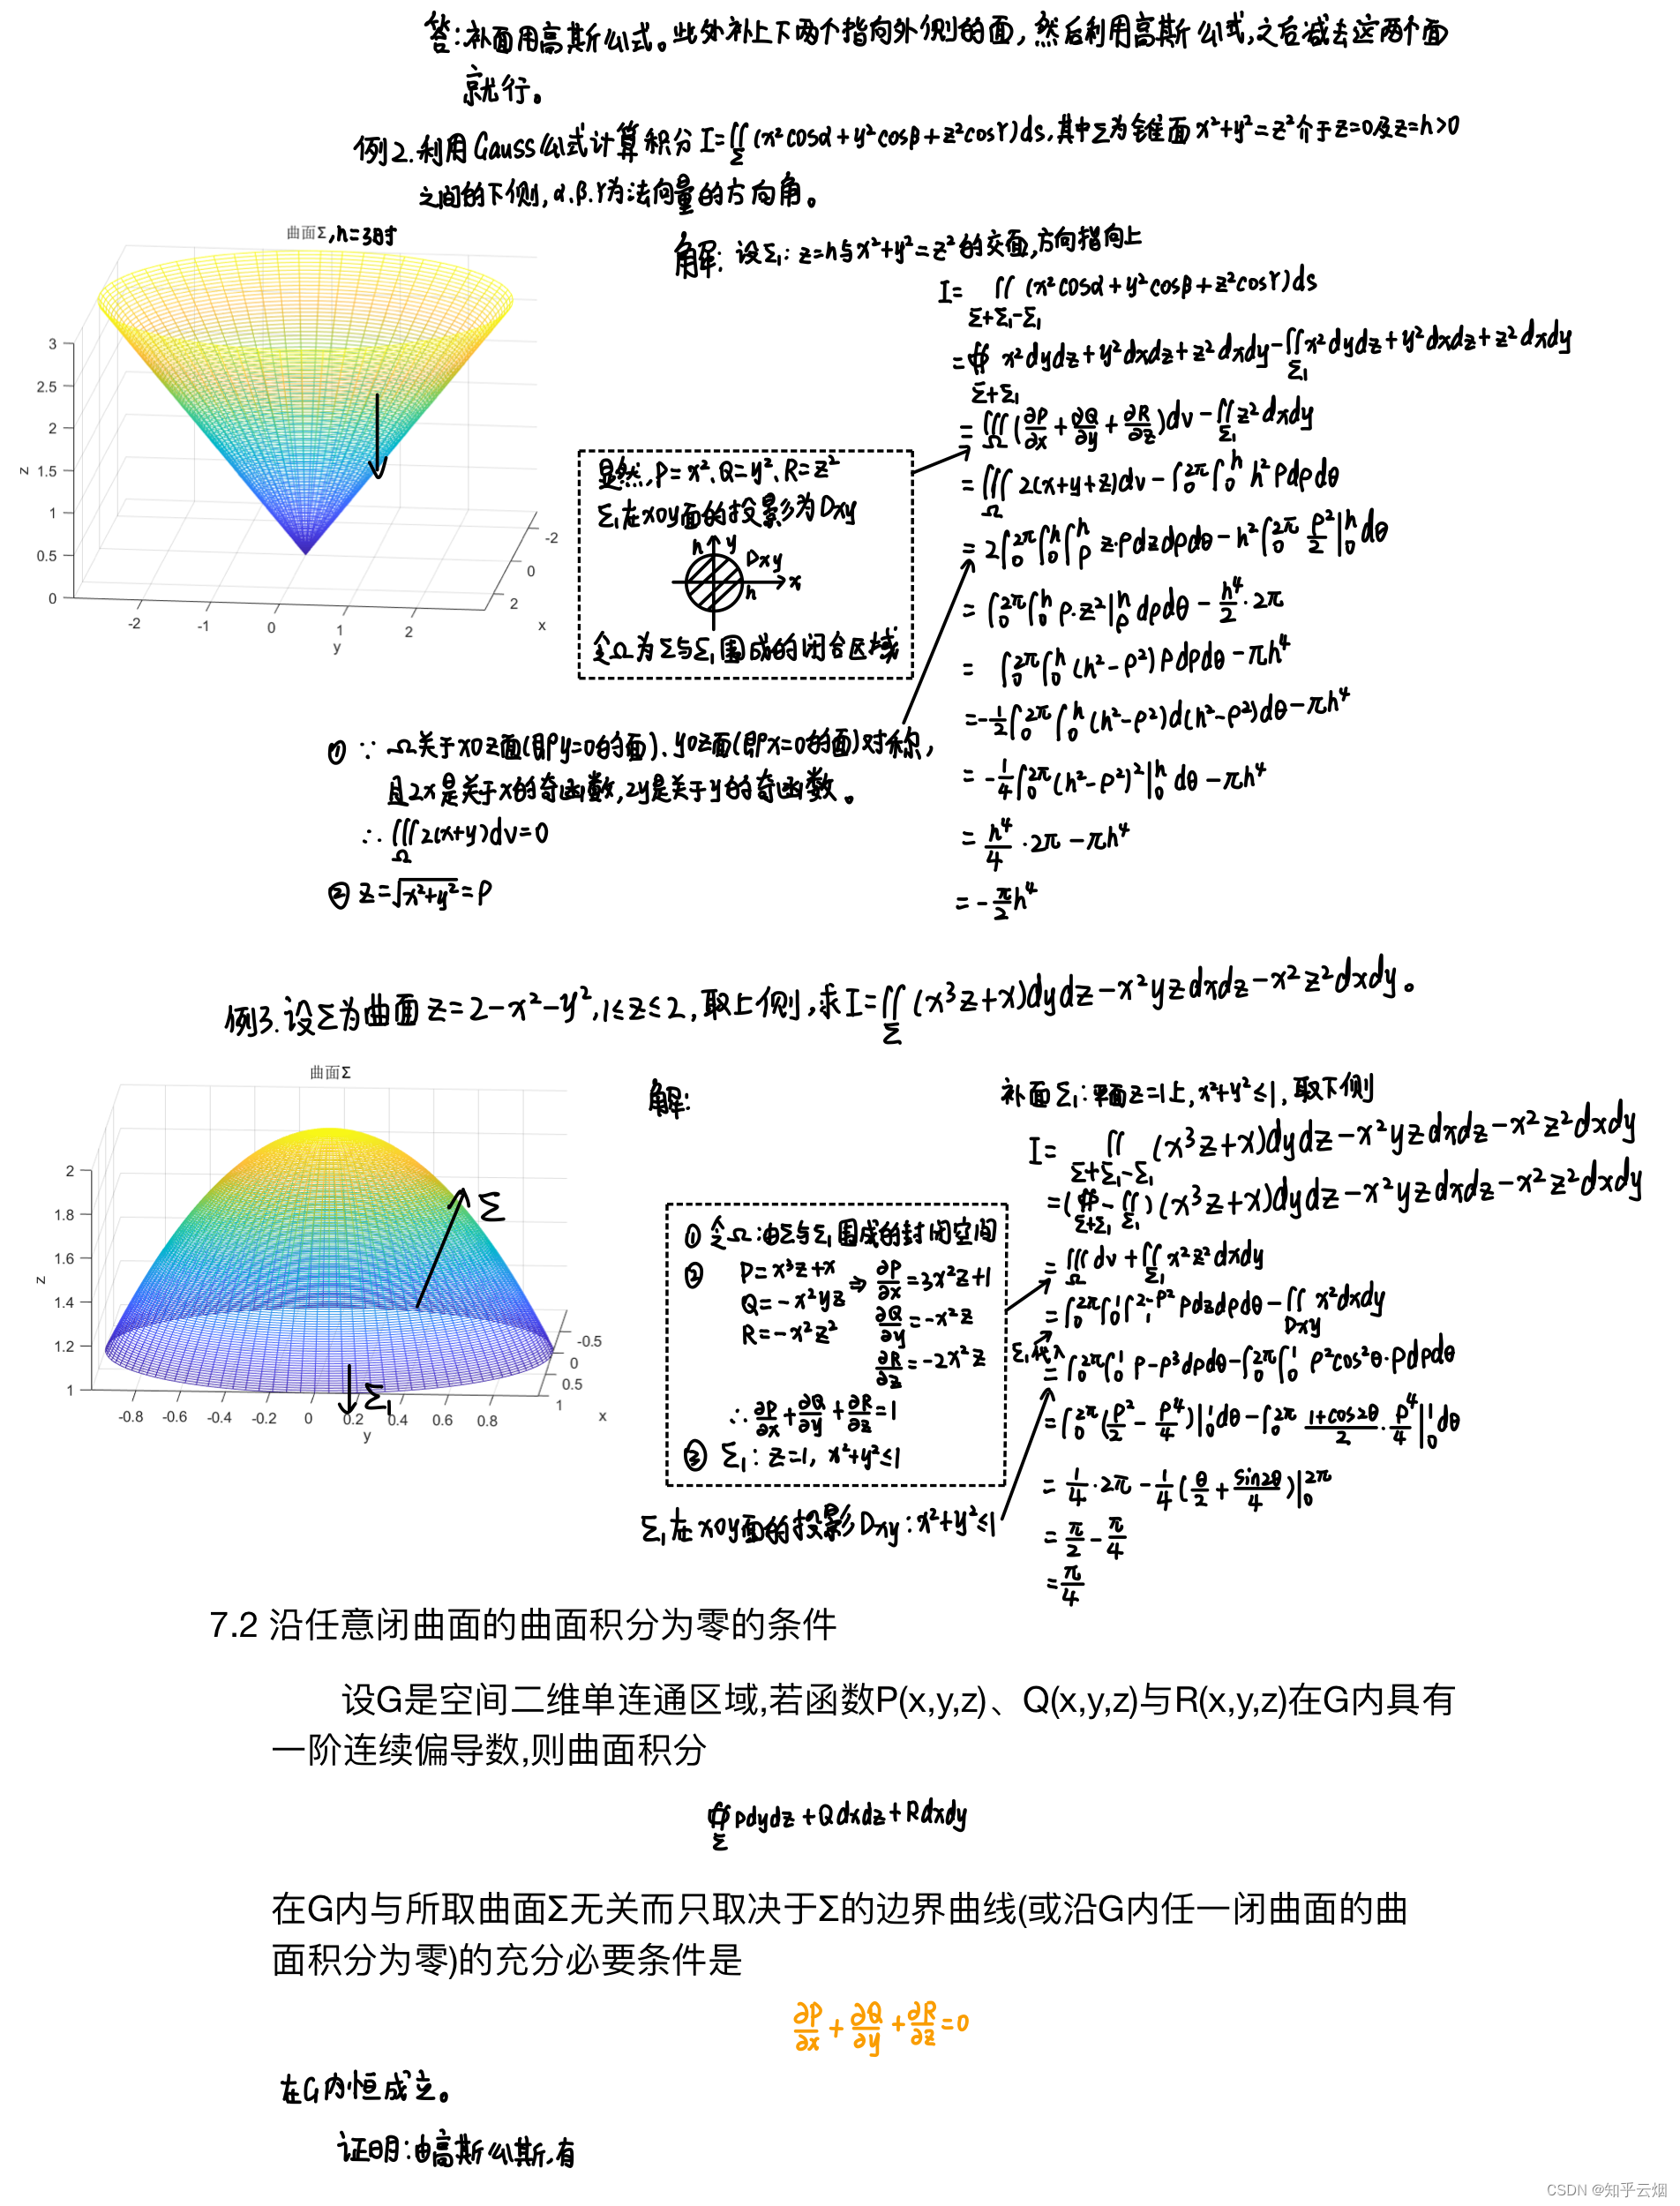 答:补面用高斯公式。此外补上下两个指向外侧的面,然后利用高斯公式,之后减去这两个面
就行。
例2.利用Gauss公式计算积分I=∬_Σ(x²cosα+y²cosβ+z²cosγ)ds,其中Σ为锥面x²+y²=z²介于z=0及z=h>0
之间的下侧,α.β.γ为法向量的方向角。
曲面Σ,h=3时
3
2.5
2
1.5
1
0.5
0
z
-2
-1
0
1
2
y
-2
0
2
x
解:设Σ₁:z=h与x²+y²=z²的交面,方向指向上
I=∬_{Σ+Σ₁-Σ₁}(x²cosα+y²cosβ+z²cosγ)ds
=∯_{Σ+Σ₁}x²dydz+y²dxdz+z²dxdy-∬_{Σ₁}x²dydz+y²dxdz+z²dxdy
=∭_Ω(∂P/∂x+∂Q/∂y+∂R/∂z)dv-∬_{Σ₁}z²dxdy
=∭_Ω2(x+y+z)dv-∫₀^{2π}∫₀^h h²ρdρdθ
=2∫₀^{2π}∫₀^h∫_ρ^h z·ρdzdρdθ-h²∫₀^{2π}ρ²/2|₀^h dθ
=∫₀^{2π}∫₀^h ρ·z²|_ρ^h dρdθ-h⁴/2·2π
=∫₀^{2π}∫₀^h(h²-ρ²)ρdρdθ-πh⁴
=-1/2∫₀^{2π}∫₀^h(h²-ρ²)d(h²-ρ²)dθ-πh⁴
=-1/4∫₀^{2π}(h²-ρ²)²|₀^h dθ-πh⁴
=h⁴/4·2π-πh⁴
=-π/2h⁴
显然,P=x²、Q=y²、R=z²
Σ₁在xoy面的投影为Dxy
h y
Dxy
x
h
令Ω为Σ与Σ₁围成的闭合区域
① ∵Ω关于xoz面(即y=0的面)、yoz面(即x=0的面)对称,
且2x是关于x的奇函数,2y是关于y的奇函数。
∴∭_Ω2(x+y)dv=0
② z=√(x²+y²)=ρ
例3.设Σ为曲面z=2-x²-y²,1≤z≤2,取上侧,求I=∬_Σ(x³z+x)dydz-x²yzdxdz-x²z²dxdy。
曲面Σ
2
1.8
1.6
1.4
1.2
1
z
-0.8
-0.6
-0.4
-0.2
0
0.2
0.4
0.6
0.8
y
-0.5
0
0.5
1
x
Σ
Σ₁
解:
补面Σ₁:平面z=1上,x²+y²≤1,取下侧
I=∬_{Σ+Σ₁-Σ₁}(x³z+x)dydz-x²yzdxdz-x²z²dxdy
=(∯_{Σ+Σ₁}-∬_{Σ₁})(x³z+x)dydz-x²yzdxdz-x²z²dxdy
=∭_Ωdv+∬_{Σ₁}x²z²dxdy
=∫₀^{2π}∫₀^1∫₁^{2-ρ²}ρdzdρdθ-∬_{Dxy}x²dxdy
Σ₁代入
=∫₀^{2π}∫₀^1ρ-ρ³dρdθ-∫₀^{2π}∫₀^1ρ²cos²θ·ρdρdθ
=∫₀^{2π}(ρ²/2-ρ⁴/4)|₀^1dθ-∫₀^{2π}(1+cos2θ)/2·ρ⁴/4|₀^1dθ
=1/4·2π-1/4(θ/2+sin2θ/4)|₀^{2π}
=π/2-π/4
=π/4
① 令Ω:由Σ与Σ₁围成的封闭空间
② P=x³z+x⇒∂P/∂x=3x²z+1
Q=-x²yz ∂Q/∂y=-x²z
R=-x²z² ∂R/∂z=-2x²z
∴∂P/∂x+∂Q/∂y+∂R/∂z=1
③ Σ₁:z=1, x²+y²≤1
Σ₁在xoy面的投影Dxy:x²+y²≤1
7.2 沿任意闭曲面的曲面积分为零的条件
设G是空间二维单连通区域,若函数P(x,y,z)、Q(x,y,z)与R(x,y,z)在G内具有
一阶连续偏导数,则曲面积分
∯_ΣPdydz+Qdxdz+Rdxdy
在G内与所取曲面Σ无关而只取决于Σ的边界曲线(或沿G内任一闭曲面的曲
面积分为零)的充分必要条件是
∂P/∂x+∂Q/∂y+∂R/∂z=0
在G内恒成立。
证明:由高斯公斯,有
CSDN @知乎云烟